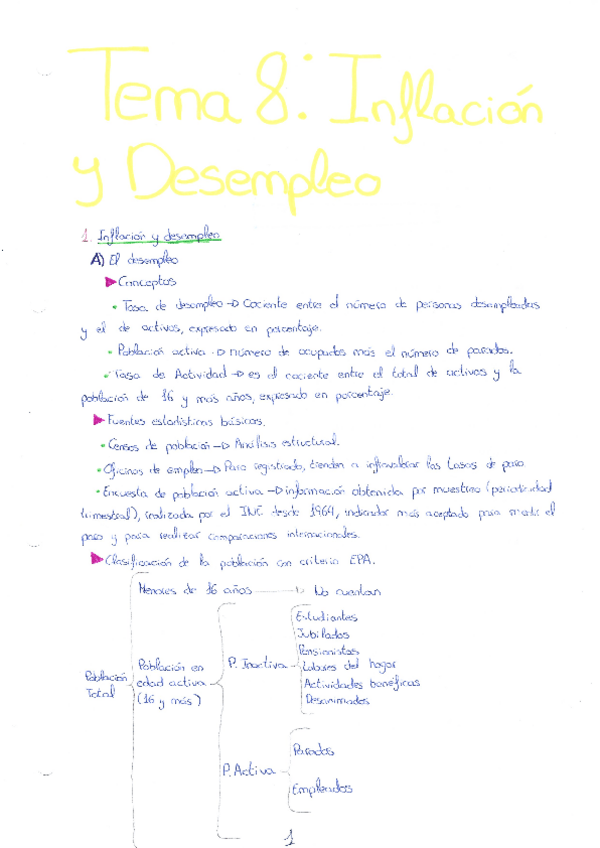 Tema 8: Inflación
y Desempleo
1. Inflación y desempleo
A) El desempleo
▶ Conceptos
• Tasa de desempleo → Cociente entre el número de personas desempleadas
y el de activos, expresado en porcentaje.
• Población activa → número de ocupados más el número de parados.
• Tasa de Actividad → es el cociente entre el total de activos y la
población de 16 y más años, expresado en porcentaje.
▶ Fuentes estadísticas básicas.
• Censos de población → Análisis estructural.
• Oficinas de empleo → Paro registrado, tienden a infravalorar las tasas de paro
• Encuesta de población activa → información obtenida por muestreo (periodicidad
trimestral), realizada por el INE desde 1964, indicador más aceptado para medir el
paro y para realizar comparaciones internacionales.
▶ Clasificación de la población con criterio EPA.
Menores de 16 años → No cuentan
Población Total
Población en edad activa (16 y más)
P. Inactiva
Estudiantes
Jubilados
Pensionistas
Labores del hogar
Actividades benéficas
Desanimados
P. Activa
Parados
Empleados
1